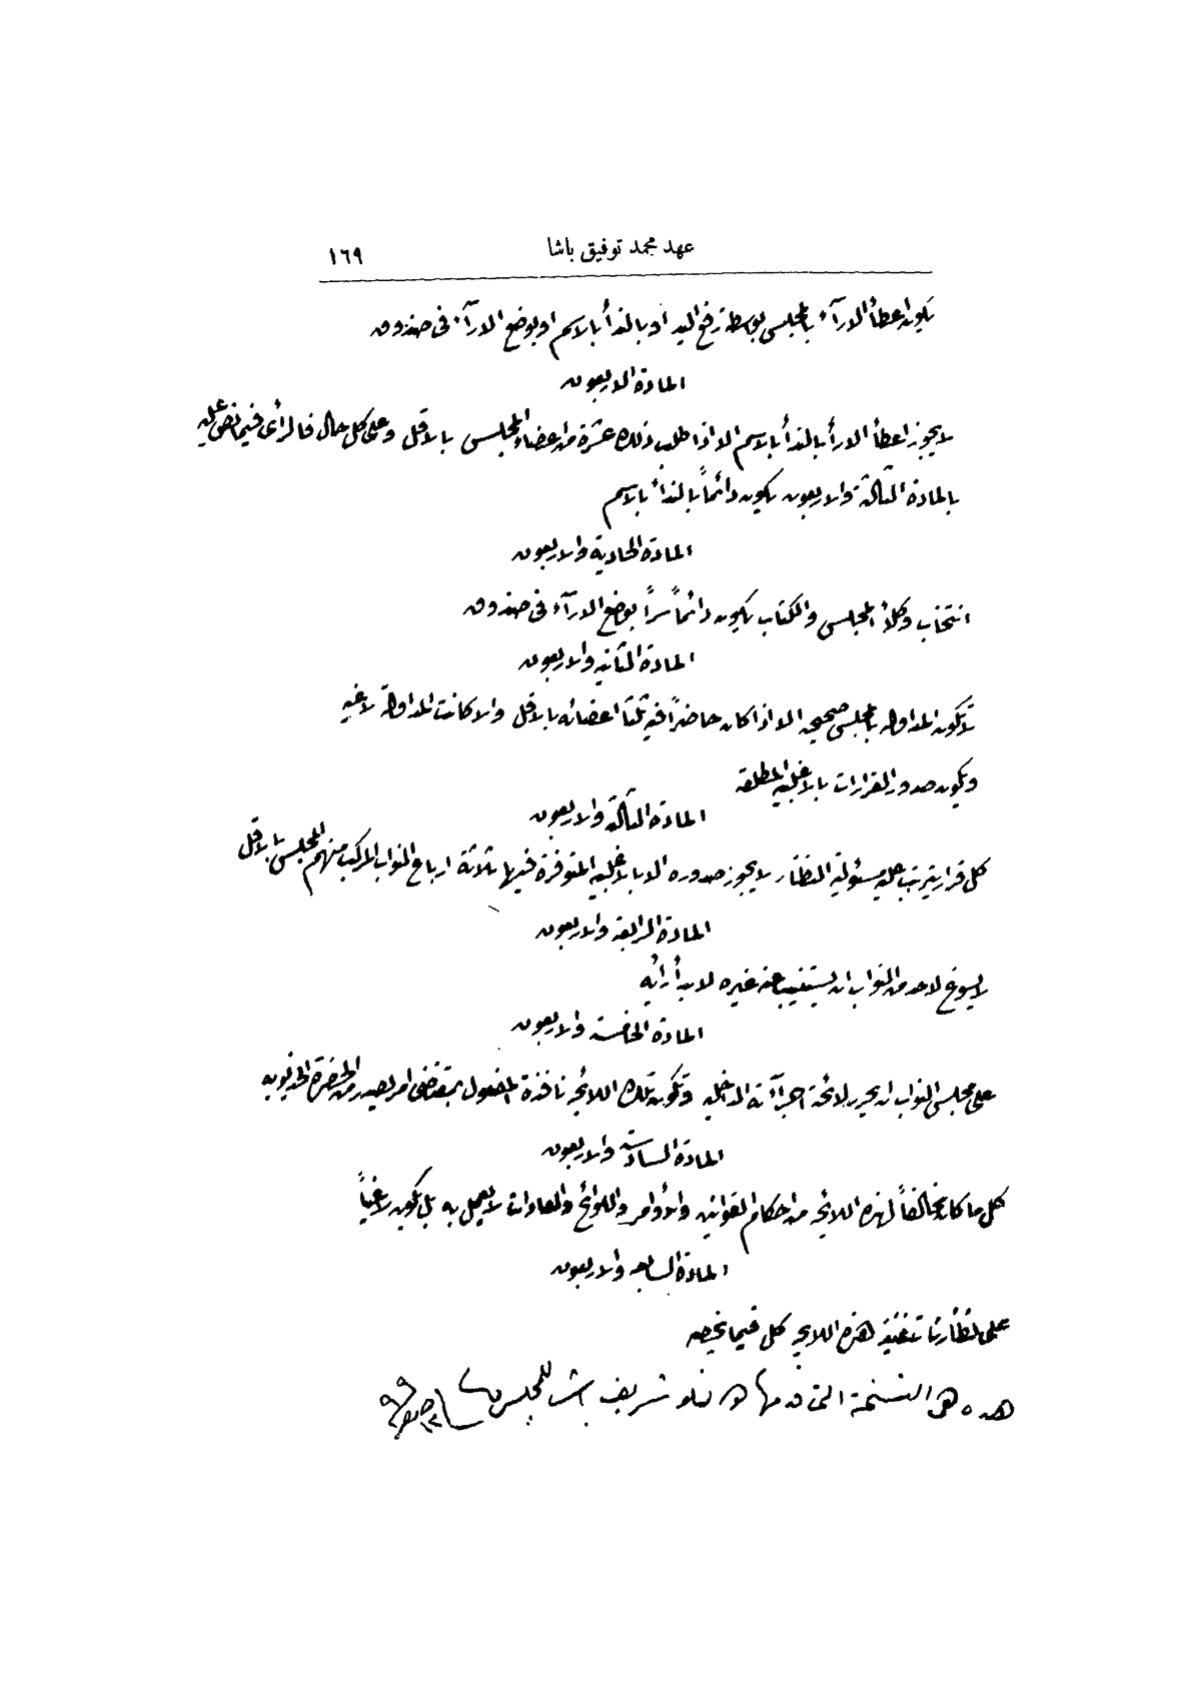 عهد محمد توفيق باشا ١٦٩
يكون اعطأ الارآء بالمجلس بواسطة رفع اليد أو بالندأ بالاسم او بوضع الارآء فى صندوق
المادة الاربعون
لا يجوز اعطأ الارأ بالندأ بالاسم الا اذا طلب ذلك عشرة من اعضاء المجلس بالاقل وعلى كل حال فالرأى فيما نص عليه
بالمادة الثالثة والاربعون يكون دائماً بالندأ بالاسم
المادة الحادية والاربعون
انتخاب وكلأ المجلس والكتاب يكون دائماً سراً بوضع الارآء فى صندوق
المادة الثانيه والاربعون
لا تكون المداولة بالمجلس صحيحه الا اذا كان حاضراً فيه ثلثا اعضائه بالاقل والا كانت المداولة لاغيه
ويكون صدور القرارات بالاغلبيه المطلقه
المادة الثالثة والاربعون
كل قرار يترتب عليه مسئولية النظار لا يجوز صدوره الا بالاغلبيه المتوفرة فيها ثلاثة ارباع النواب المركب منهم المجلس بالاقل
المادة الرابعة والاربعون
لا يسوغ لاحد من النواب ان يستنيب عنه غيره لابدأ رأيه
المادة الخامسة والاربعون
على مجلس النواب ان يحرر لائحة اجرآآته الداخليه وتكون تلك اللائحه نافذة المفعول بمقتضى امر يصدر من الحضرة الخديويه
المادة السادسة والاربعون
كل ما كان مخالفاً لهذه اللائحه من احكام القوانين والأوامر واللوائح والعادات لا يعمل به بل يكون لاغياً
المادة السابعه والاربعون
على نظارنا تنفيذ هذه اللائحه كل فيما يخصه
هذه هى النسخة التى قدمها دولتلو شريف باشا للمجلس فى ١٢ صفر ٩٩